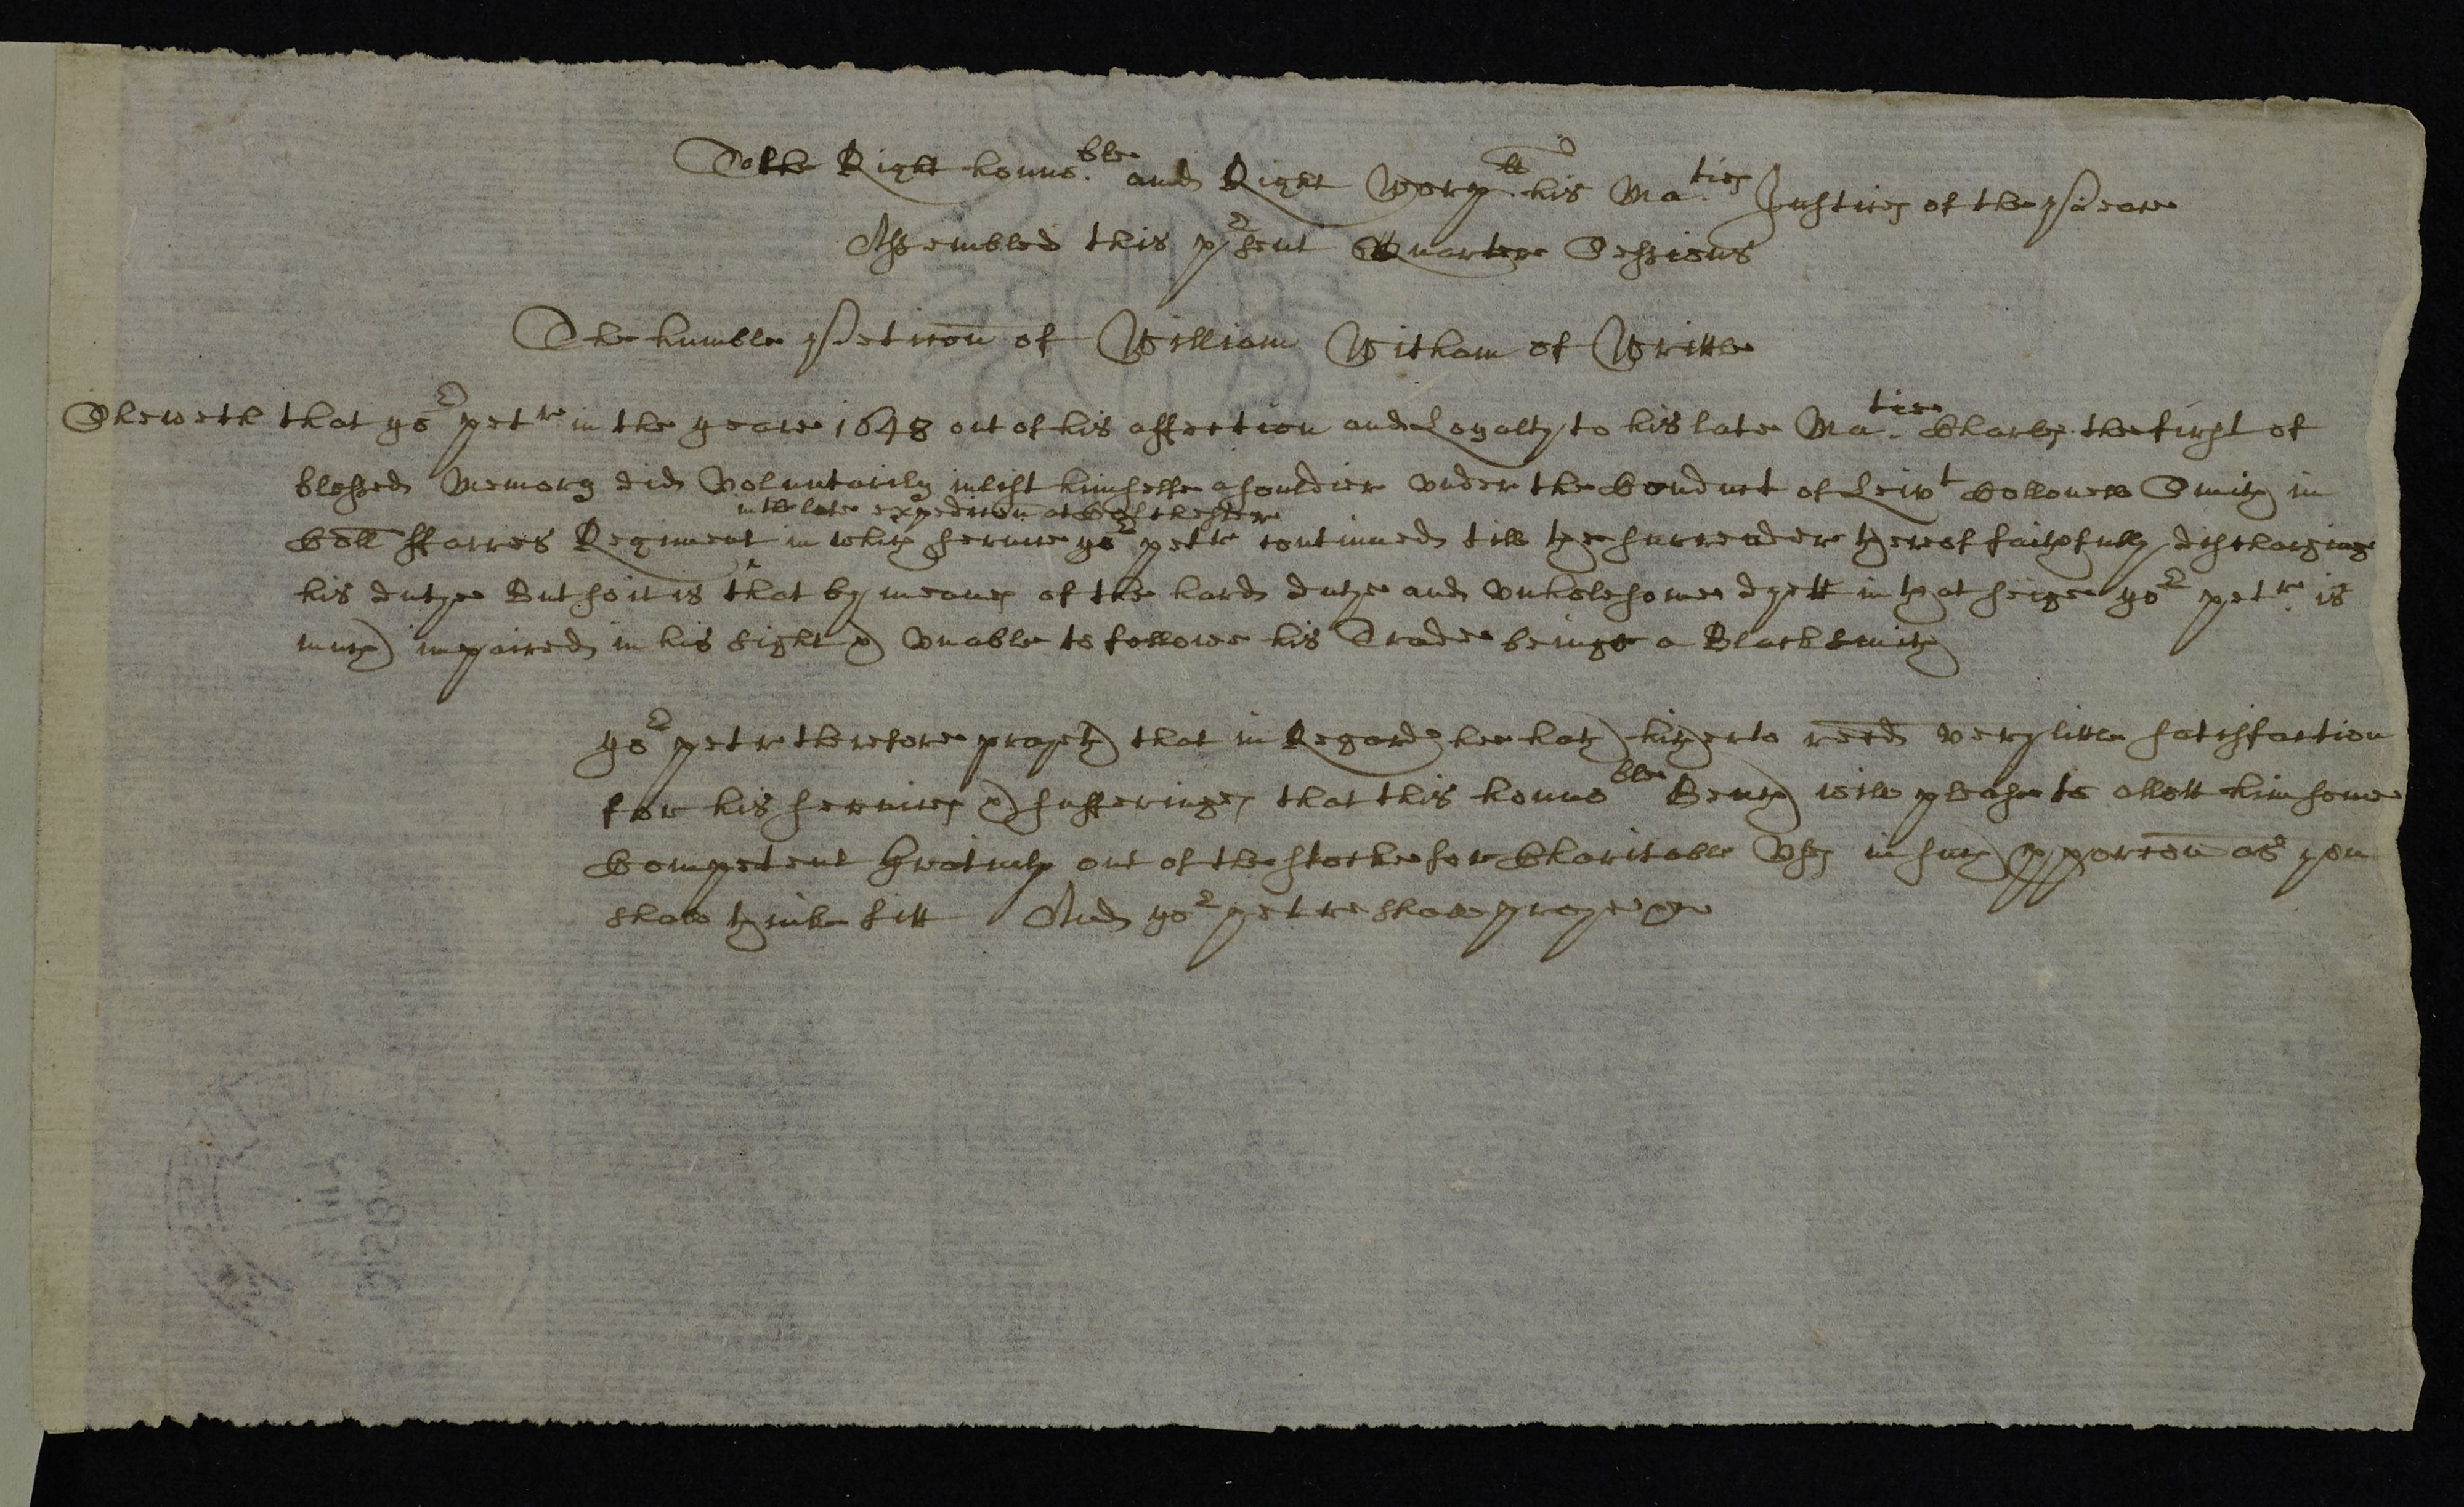 To the Right honno:ble and Right Worpll his Ma:ties Justices of the Peace
Assembled this pr̃sent Quarter Sessions
The humble Peticon̄ of William Witham of Writtle
Sheweth that yor petr in the yeare 1648 out of his affection and Loyalty to his late Ma:tie Charles the first of
blessed Memory did Voluntarily inlist himselfe a souldier vnder the Conduct of Leivt Collonell Smith in
in the late expedicon̄ at Colchester
Coll̄ ffarres Regiment ^ in which service yor petr continued till the surrender thereof faithfully discharging
his dutye But so it is that by meanes of the hard dutye and vnholesome dyett in that seige yor petr: is
much impaired in his sight & vnable to followe his Trade beinge a Blacksmith
yor petr therefore prayeth that in Regard hee hath hitherto recd̄ very little satisfaction
for his services & sufferinges that this honnoble Bench will please to allott him some
Competent Gratuity out of the stocke for Charitable Vses in such pporcon̄ as you
shall thinke fitt And yor petr shall praye &c